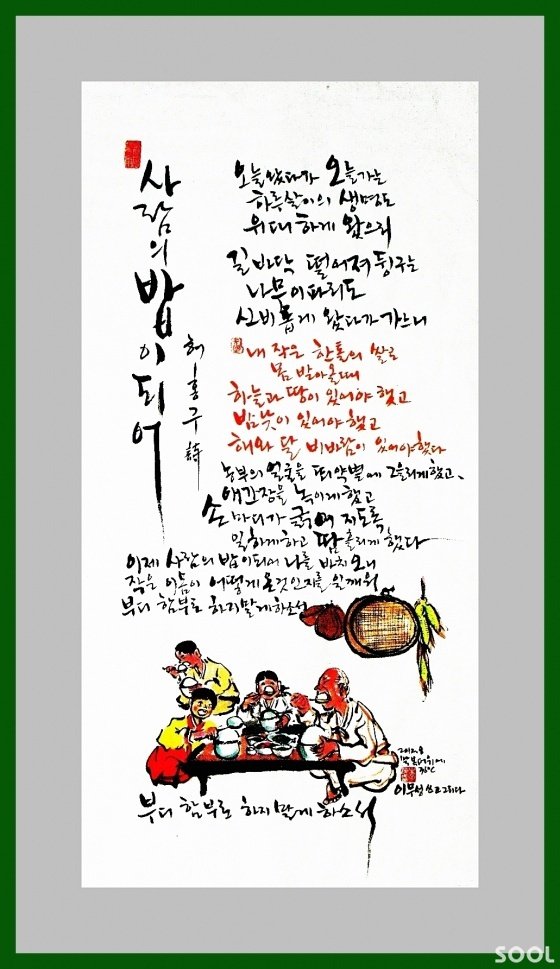 사람의 밥이 되어
허홍구 詩
오늘 왔다가 오늘 가는
하루살이의 생명도
위대하게 왔으리
길바닥 떨어져 뒹구는
나무 이파리도
신비롭게 왔다가 가느니
내 작은 한톨의 쌀로
몸 받아올 때
하늘과 땅이 있어야 했고
밤낮이 있어야 했고
해와 달 비바람이 있어야 했다
농부의 얼굴을 뙤약볕에 그을리게 했고,
애간장을 녹이게 했고
손 마디가 굵어 지도록
일하게하고 땀 흘리게 했다
이제 사람의 밥이되어 나를 바치오니
작은 이몸이 어떻게 온것인지를 일깨워
부디 함부로 하지말게하소서
부디 함부로 하지 말게 하소서
이무성 쓰고 그리다
SOOL